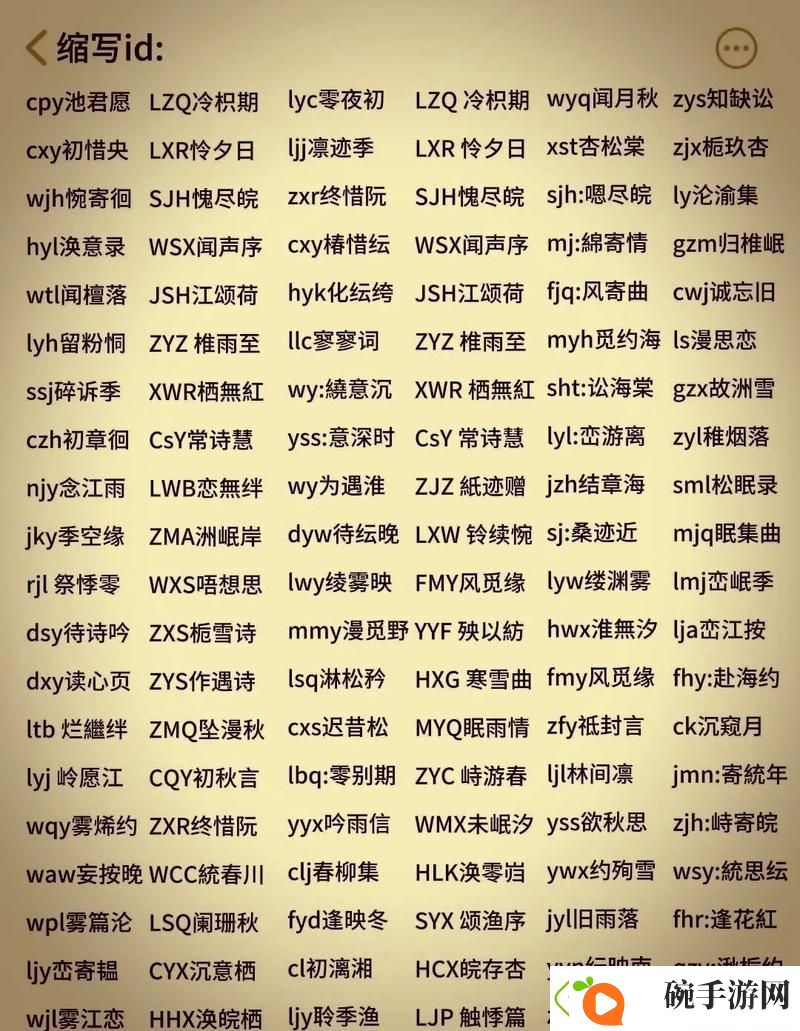 缩写id:
cpy池君愿 LZQ冷枳期 lyc零夜初 LZQ 冷枳期 wyq闻月秋 zys知缺讼
cxy初惜央 LXR怜夕日 ljj凛迹季 LXR 怜夕日 xst杏松棠 zjx栀玖杏
wjh惋寄徊 SJH愧尽皖 zxr终惜阮 SJH愧尽皖 sjh:嗯尽皖 ly沦渝集
hyl涣意录 WSX闻声序 cxy椿惜纭 WSX闻声序 mj:綿寄情 gzm归椎岷
wtl闻檀落 JSH江颂荷 hyk化纭绔 JSH江颂荷 fjq:风寄曲 cwj诚忘旧
lyh留粉恫 ZYZ 椎雨至 llc寥寥词 ZYZ 椎雨至 myh觅约海 ls漫思恋
ssj碎诉季 XWR栖無紅 wy:繞意沉 XWR 栖無紅 sht:讼海棠 gzx故洲雪
czh初章徊 CsY常诗慧 yss:意深时 CsY 常诗慧 lyl:峦游离 zyl稚烟落
njy念江雨 LWB恋無绊 wy为遇淮 ZJZ 紙迹赠 jzh结章海 sml松眠录
jky季空缘 ZMA洲岷岸 dyw待纭晚 LXW 铃续惋 sj:桑迹近 mjq眠集曲
rjl 祭悸零 WXS唔想思 lwy绫雾映 FMY风觅缘 lyw缕渊雾 lmj峦岷季
dsy待诗吟 ZXS栀雪诗 mmy漫觅野 YYF 殃以紡 hwx淮無汐 lja峦江按
dxy读心页 ZYS作遇诗 lsq淋松矜 HXG 寒雪曲 fmy风觅缘 fhy:赴海约
ltb 烂繼绊 ZMQ坠漫秋 cxs迟昔松 MYQ眠雨情 zfy祗封言 ck沉窥月
lyj 岭愿江 CQY初秋言 lbq:零别期 ZYC 峙游春 ljl林间凛 jmn:寄統年
wqy雾烯约 ZXR终惜阮 yyx吟雨信 WMX未岷汐 yss欲秋思 zjh:峙寄皖
waw妄按晚 WCC統春川 clj春柳集 HLK涣零岿 ywx约殉雪 wsy:統思纭
wpl雾篇沦 LSQ阑珊秋 fyd逢映冬 SYX 颂渔序 jyl旧雨落 fhr:逢花紅
ljy峦寄韫 CYX沉意栖 cl初漓湘 HCX皖存杏
wjl雾江恋 HHX涣皖栖 ljy聆季渔 LJP 触悸篇
碗手游网